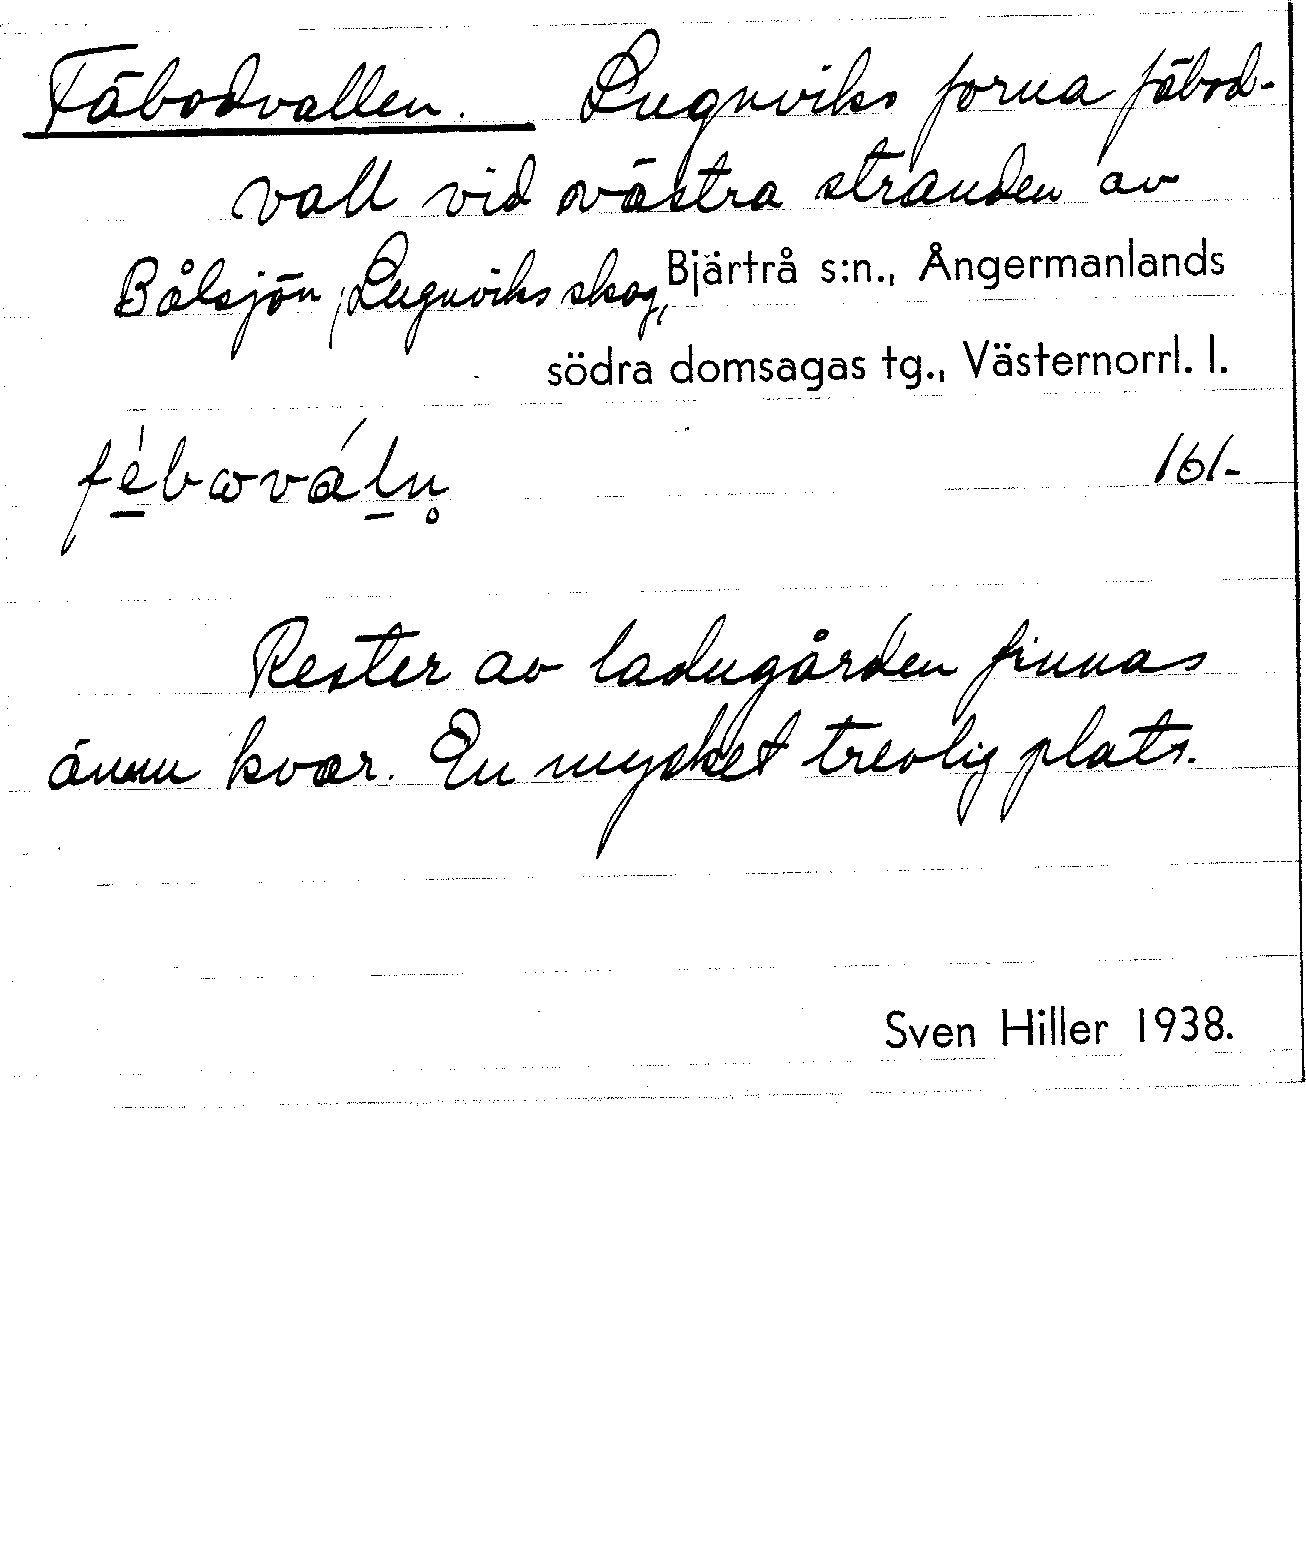 Fäbodvallen. Lugnviks forna fäbod-
vall vid västra stranden av
Bålsjön, Lugnviks skog, Bjärtrå s:n., Ångermanlands
södra domsagas tg., Västernorrl. l.
161-
Rester av ladugården finnas
ännu kvar. En mycket trevlig plats.
Sven Hiller 1938.